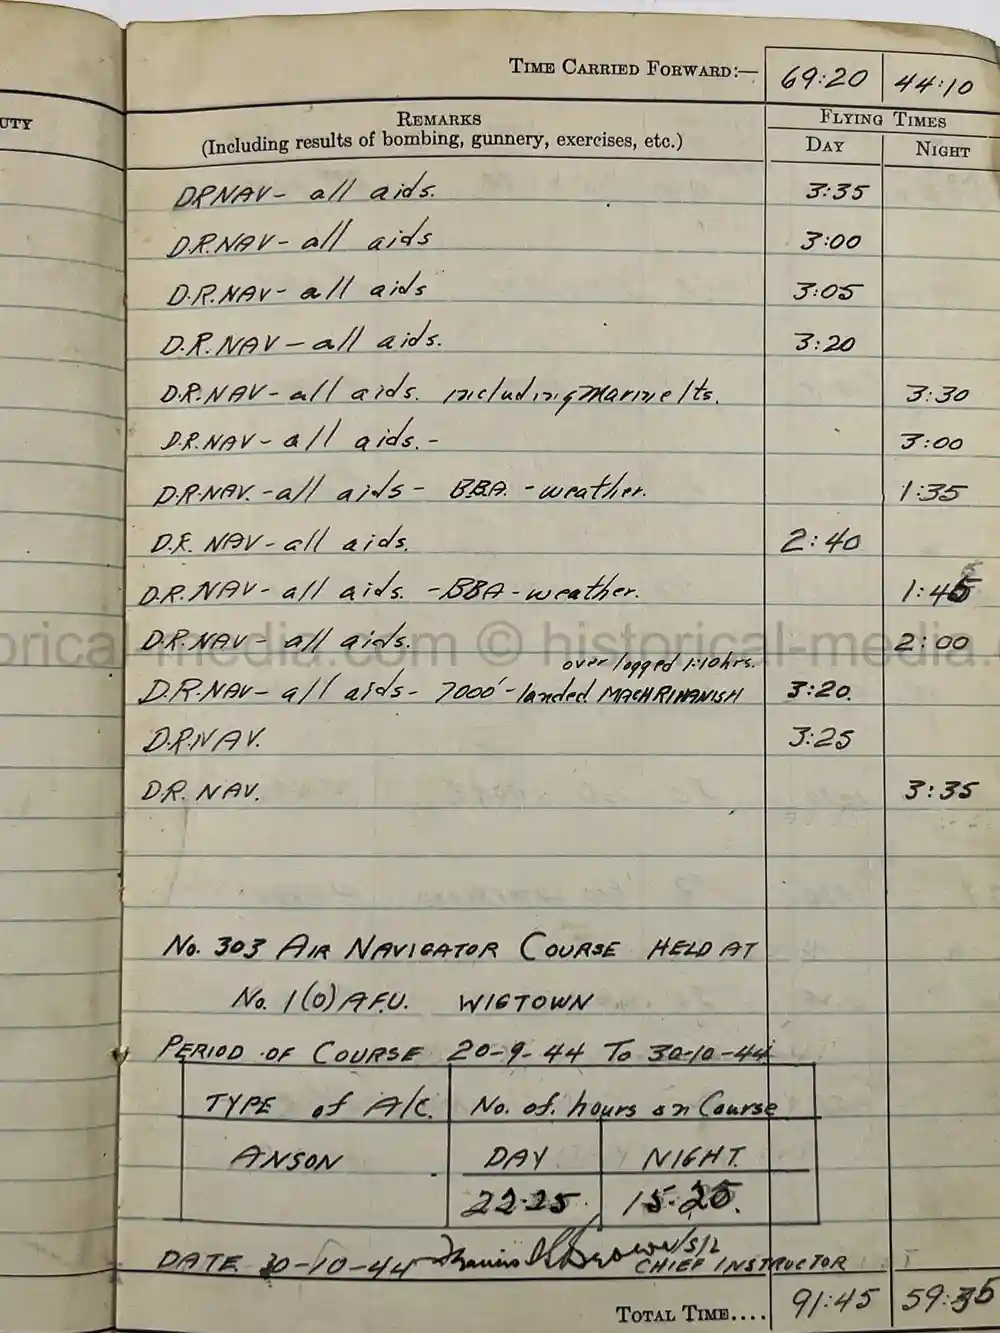 TIME CARRIED FORWARD:— 69:20 44:10
UTY
REMARKS
(Including results of bombing, gunnery, exercises, etc.)
FLYING TIMES
DAY NIGHT
DRNAV- all aids. 3:35
D.R.NAV- all aids 3:00
D.R.NAV- all aids 3:05
D.R.NAV- all aids. 3:20
D.R.NAV- all aids. including Marine lts. 3:30
D.R.NAV- all aids.- 3:00
D.R.NAV.-all aids- B.B.A. -weather. 1:35
D.R. NAV-all aids. 2:40
D.R.NAV- all aids. -BBA-weather. 1:45
D.R.NAV- all aids. 2:00
orical-media.com © historical-media.c
over logged 1:10hrs.
D.R.NAV- all aids- 7000'-landed MACHRIHANISH 3:20.
D.R.NAV. 3:25
D.R. NAV. 3:35
No. 303 AIR NAVIGATOR COURSE HELD AT
No. 1(O)A.F.U. WIGTOWN
PERIOD OF COURSE 20-9-44 TO 30-10-44
TYPE of A/C. No. of. hours on Course
ANSON DAY NIGHT.
22.25 15.25.
DATE 30-10-44 S/L
CHIEF INSTRUCTOR
TOTAL TIME.... 91:45 59:35